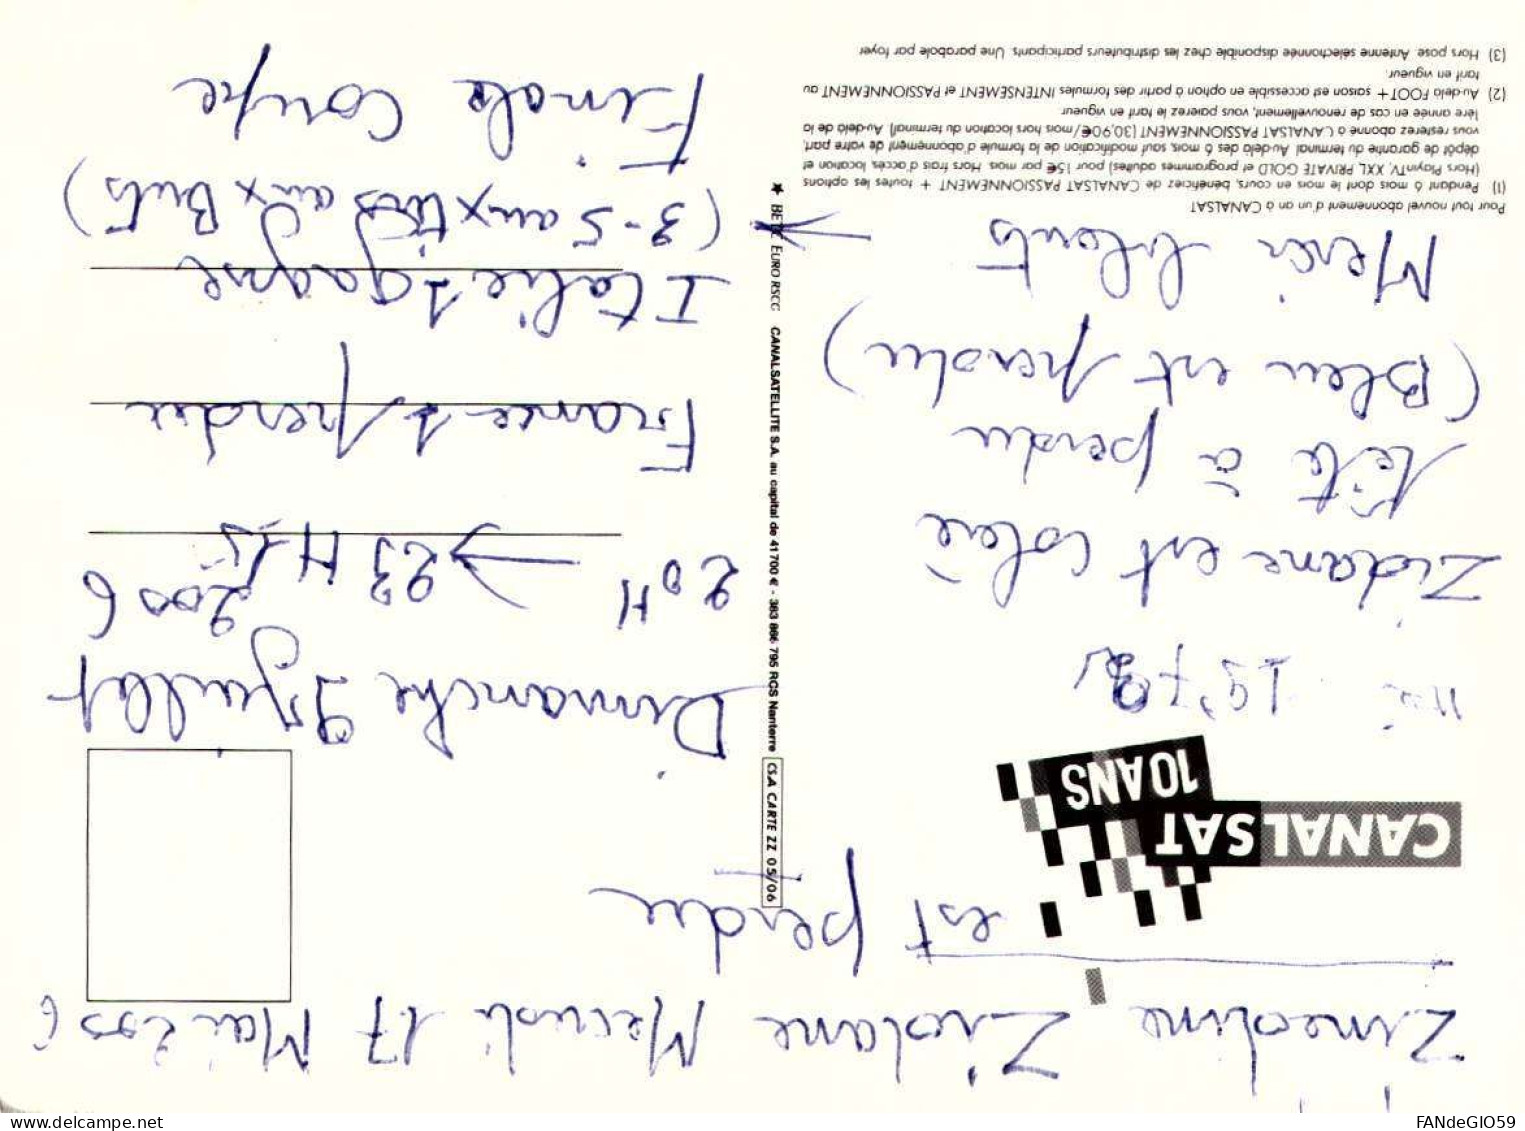 Zinedine Zidane Mecredi 17 Mai 2006
est perdu
CANALSAT
10 ANS
né 1972
Zidane est
tête à perdu
(Bleu est perdu)
Merci
Pour tout nouvel abonnement d'un an à CANALSAT
(1) Pendant 6 mois dont le mois en cours, bénéficiez de CANALSAT PASSIONNEMENT + toutes les options
(Hors PlayinTV, XXL, PRIVATE GOLD et programmes adultes) pour 15€ par mois. Hors frais d'accès, location et
dépôt de garantie du terminal. Au-delà des 6 mois, sauf modification de la formule d'abonnement de votre part,
vous resterez abonné à CANALSAT PASSIONNEMENT (30,90€/mois hors location du terminal). Au-delà de la
1ère année en cas de renouvellement, vous paierez le tarif en vigueur.
(2) Au-delà FOOT+ saison est accessible en option à partir des formules INTENSEMENT et PASSIONNEMENT au
tarif en vigueur.
(3) Hors pose. Antenne sélectionnée disponible chez les distributeurs participants. Une parabole par foyer
CSA CARTE ZZ 05/06
★ BETC EURO RSCG CANALSATELLITE S.A. au capital de 41 700 € - 383 866 795 RCS Nanterre
Dimanche 9 juillet
2006
20H → 23H15
France 1 perdu
Italie 1 gagne
(3-5 aux tirs aux Buts)
Finale Coupe
delcampe.net
FANdeGIO59